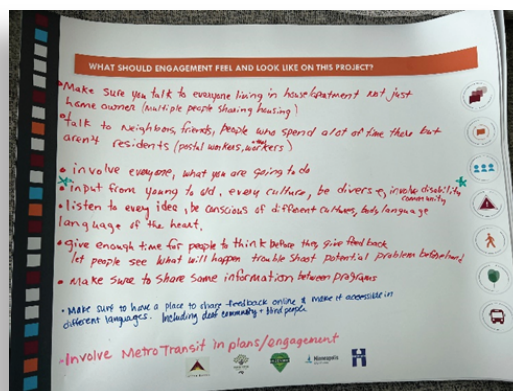 WHAT SHOULD ENGAGEMENT FEEL AND LOOK LIKE ON THIS PROJECT?
• Make sure you talk to everyone living in house/apartment not just
home owner (Multiple people sharing housing)
• talk to Neighbors, friends, People who spend a lot of time there but
aren't residents (postal workers, workers)
• involve everyone, what you are going to do
• input from young to old, every culture, be diverse, involve disability
community
• listen to every idea, be conscious of different cultures, body language
language of the heart.
• give enough time for people to think before they give feedback
let people see what will happen trouble shoot potential problem beforehand
• Make sure to share same information between programs
• Make sure to have a place to share feedback online & make it accessible in
different languages. Including deaf community + blind people
• Involve Metro Transit in plans/engagement
Minneapolis